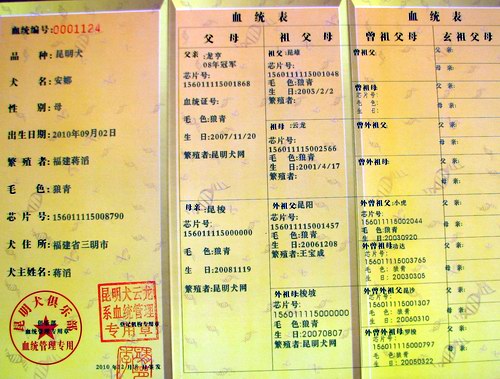 血统编号:0001124
品 种:昆明犬
犬 名:安娜
性 别:母
出生日期:2010年09月02日
繁殖者:福建蒋滔
毛 色:狼青
芯片号:156011115008790
犬住所:福建省三明市
犬主姓名:蒋滔
昆明犬俱乐部
血统管理专用
昆明犬云龙
系血统管理
专用章
血 统 表
父 母
父亲:龙亨
08年冠军
芯片号:
156011115001868
血统证号:
毛 色:狼青
生 日:2007/11/20
繁殖者:昆明犬网
母亲:昆梭
芯片号:
156011115000000
毛 色:狼青
生 日:20081119
繁殖者:昆明犬网
祖 父 母
祖父:昆雄
芯片号:
156011115001048
毛 色:狼青
生 日:2005/2/2
繁殖者:
祖母:云龙
芯片号:
156011115002566
毛 色:狼青
生 日:2001/4/17
繁殖者:
外祖父昆阳
芯片号:
156011115001457
毛 色:狼青
生 日:20061208
繁殖者:王宝成
外祖母梭坡
芯片号:
156011115000000
毛 色:狼青
生 日:20070807
繁殖者:昆明犬网
血 统 表
曾祖父母
曾祖父:
曾祖母:
芯片号:
毛 色:
生 日:
曾外祖父:
曾外祖母:
外曾祖父:小虎
芯片号:
156011115002044
毛 色:狼青
生 日:20030920
外曾祖母
芯片号:
156011115003765
毛 色:狼青
生 日:20030305
外曾外祖父昆沙
芯片号:
156011115001307
毛 色:狼青
生 日:20060310
外曾外祖母罗梭
芯片号:
156011115000797
毛 色:狼青
生 日:20050322
玄祖父母
父亲:
母亲:
父亲:
母亲:
父亲:
母亲:
父亲:
母亲:
父亲:
母亲:
父亲:
母亲:
父亲:
母亲:
父亲:
母亲: